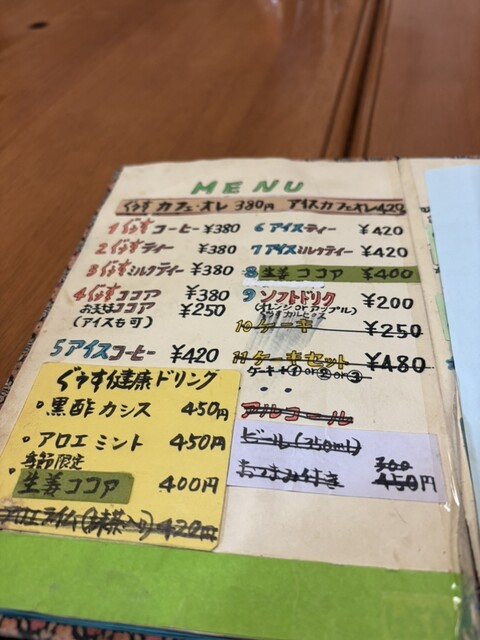 MENU
ぐぅすカフェ・オレ 380円 アイスカフェオレ420
1 ぐぅすコーヒー ¥380
2 ぐぅすティー ¥380
3 ぐぅすミルクティー ¥380
4 ぐぅすココア ¥380
お子さまココア ¥250
(アイスも可)
5 アイスコーヒー ¥420
6 アイスティー ¥420
7 アイスミルクティー ¥420
8 生姜ココア ¥400
9 ソフトドリンク ¥200
(オレンジ or アップル)
10 ケーキ ¥250
11 ケーキセット ¥480
ケーキ+① or ② or ③
アルコール
ビール(350ml)
おつまみ付き 300
450円
ぐぅす健康ドリンク
・黒酢カシス 450円
・アロエミント 450円
季節限定
・生姜ココア 400円
アロエライム(抹茶入り) 420円